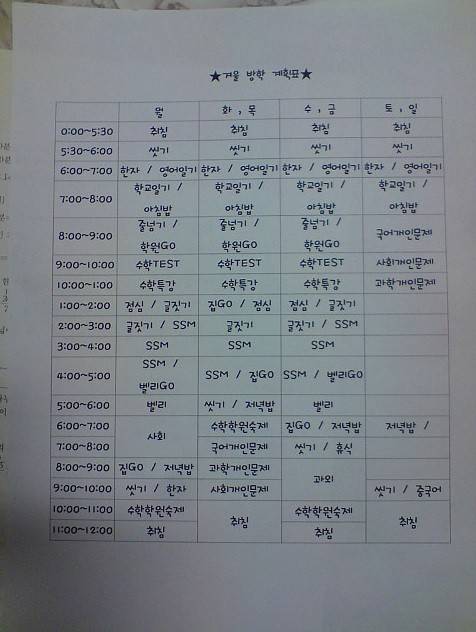 ★겨울 방학 계획표★
월 화 , 목 수 , 금 토 , 일
0:00~5:30 취침 취침 취침 취침
5:30~6:00 씻기 씻기 씻기 씻기
6:00~7:00 한자 / 영어일기 한자 / 영어일기 한자 / 영어일기 한자 / 영어일기
7:00~8:00 학교일기 / 학교일기 / 학교일기 / 학교일기 /
아침밥 아침밥 아침밥 아침밥
8:00~9:00 줄넘기 / 줄넘기 / 줄넘기 / 국어개인문제
학원GO 학원GO 학원GO
9:00~10:00 수학TEST 수학TEST 수학TEST 사회개인문제
10:00~1:00 수학특강 수학특강 수학특강 과학개인문제
1:00~2:00 점심 / 글짓기 집GO / 점심 점심 / 글짓기
2:00~3:00 글짓기 / SSM 글짓기 글짓기 / SSM
3:00~4:00 SSM SSM SSM
4:00~5:00 SSM / SSM / 집GO SSM / 벨리GO
벨리GO
5:00~6:00 벨리 씻기 / 저녁밥 벨리
6:00~7:00 사회 수학학원숙제 집GO / 저녁밥 저녁밥 /
7:00~8:00 국어개인문제 씻기 / 휴식
8:00~9:00 집GO / 저녁밥 과학개인문제 과외
9:00~10:00 씻기 / 한자 사회개인문제 씻기 / 중국어
10:00~11:00 수학학원숙제 취침 수학학원숙제 취침
11:00~12:00 취침 취침